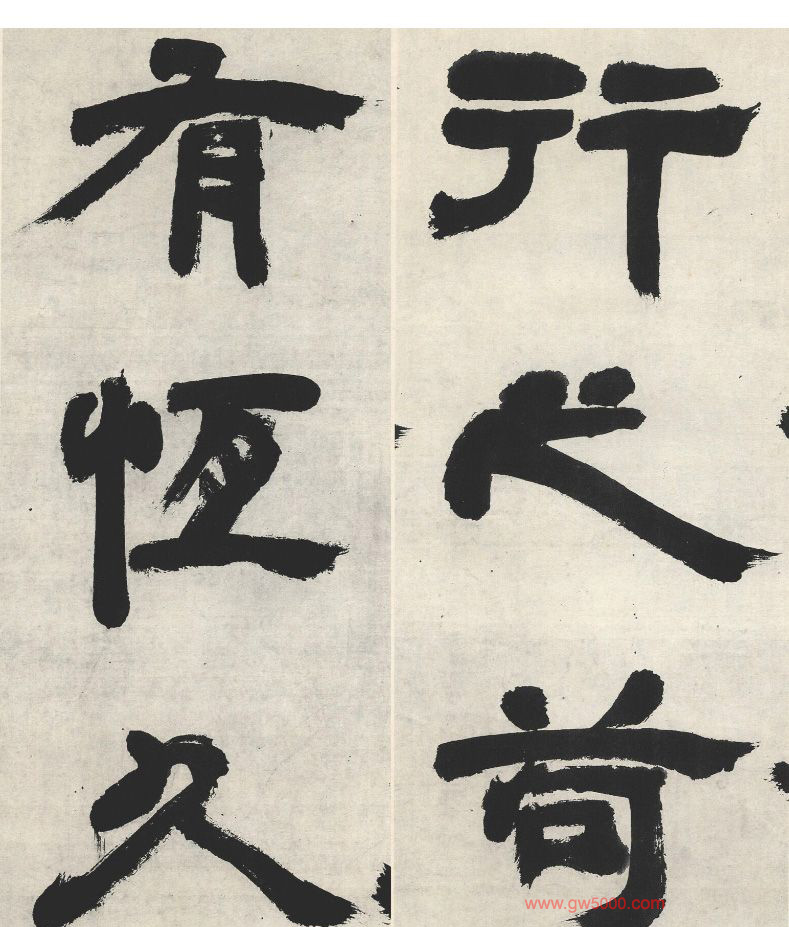 行之苟
有恆久
www.gw5000.com